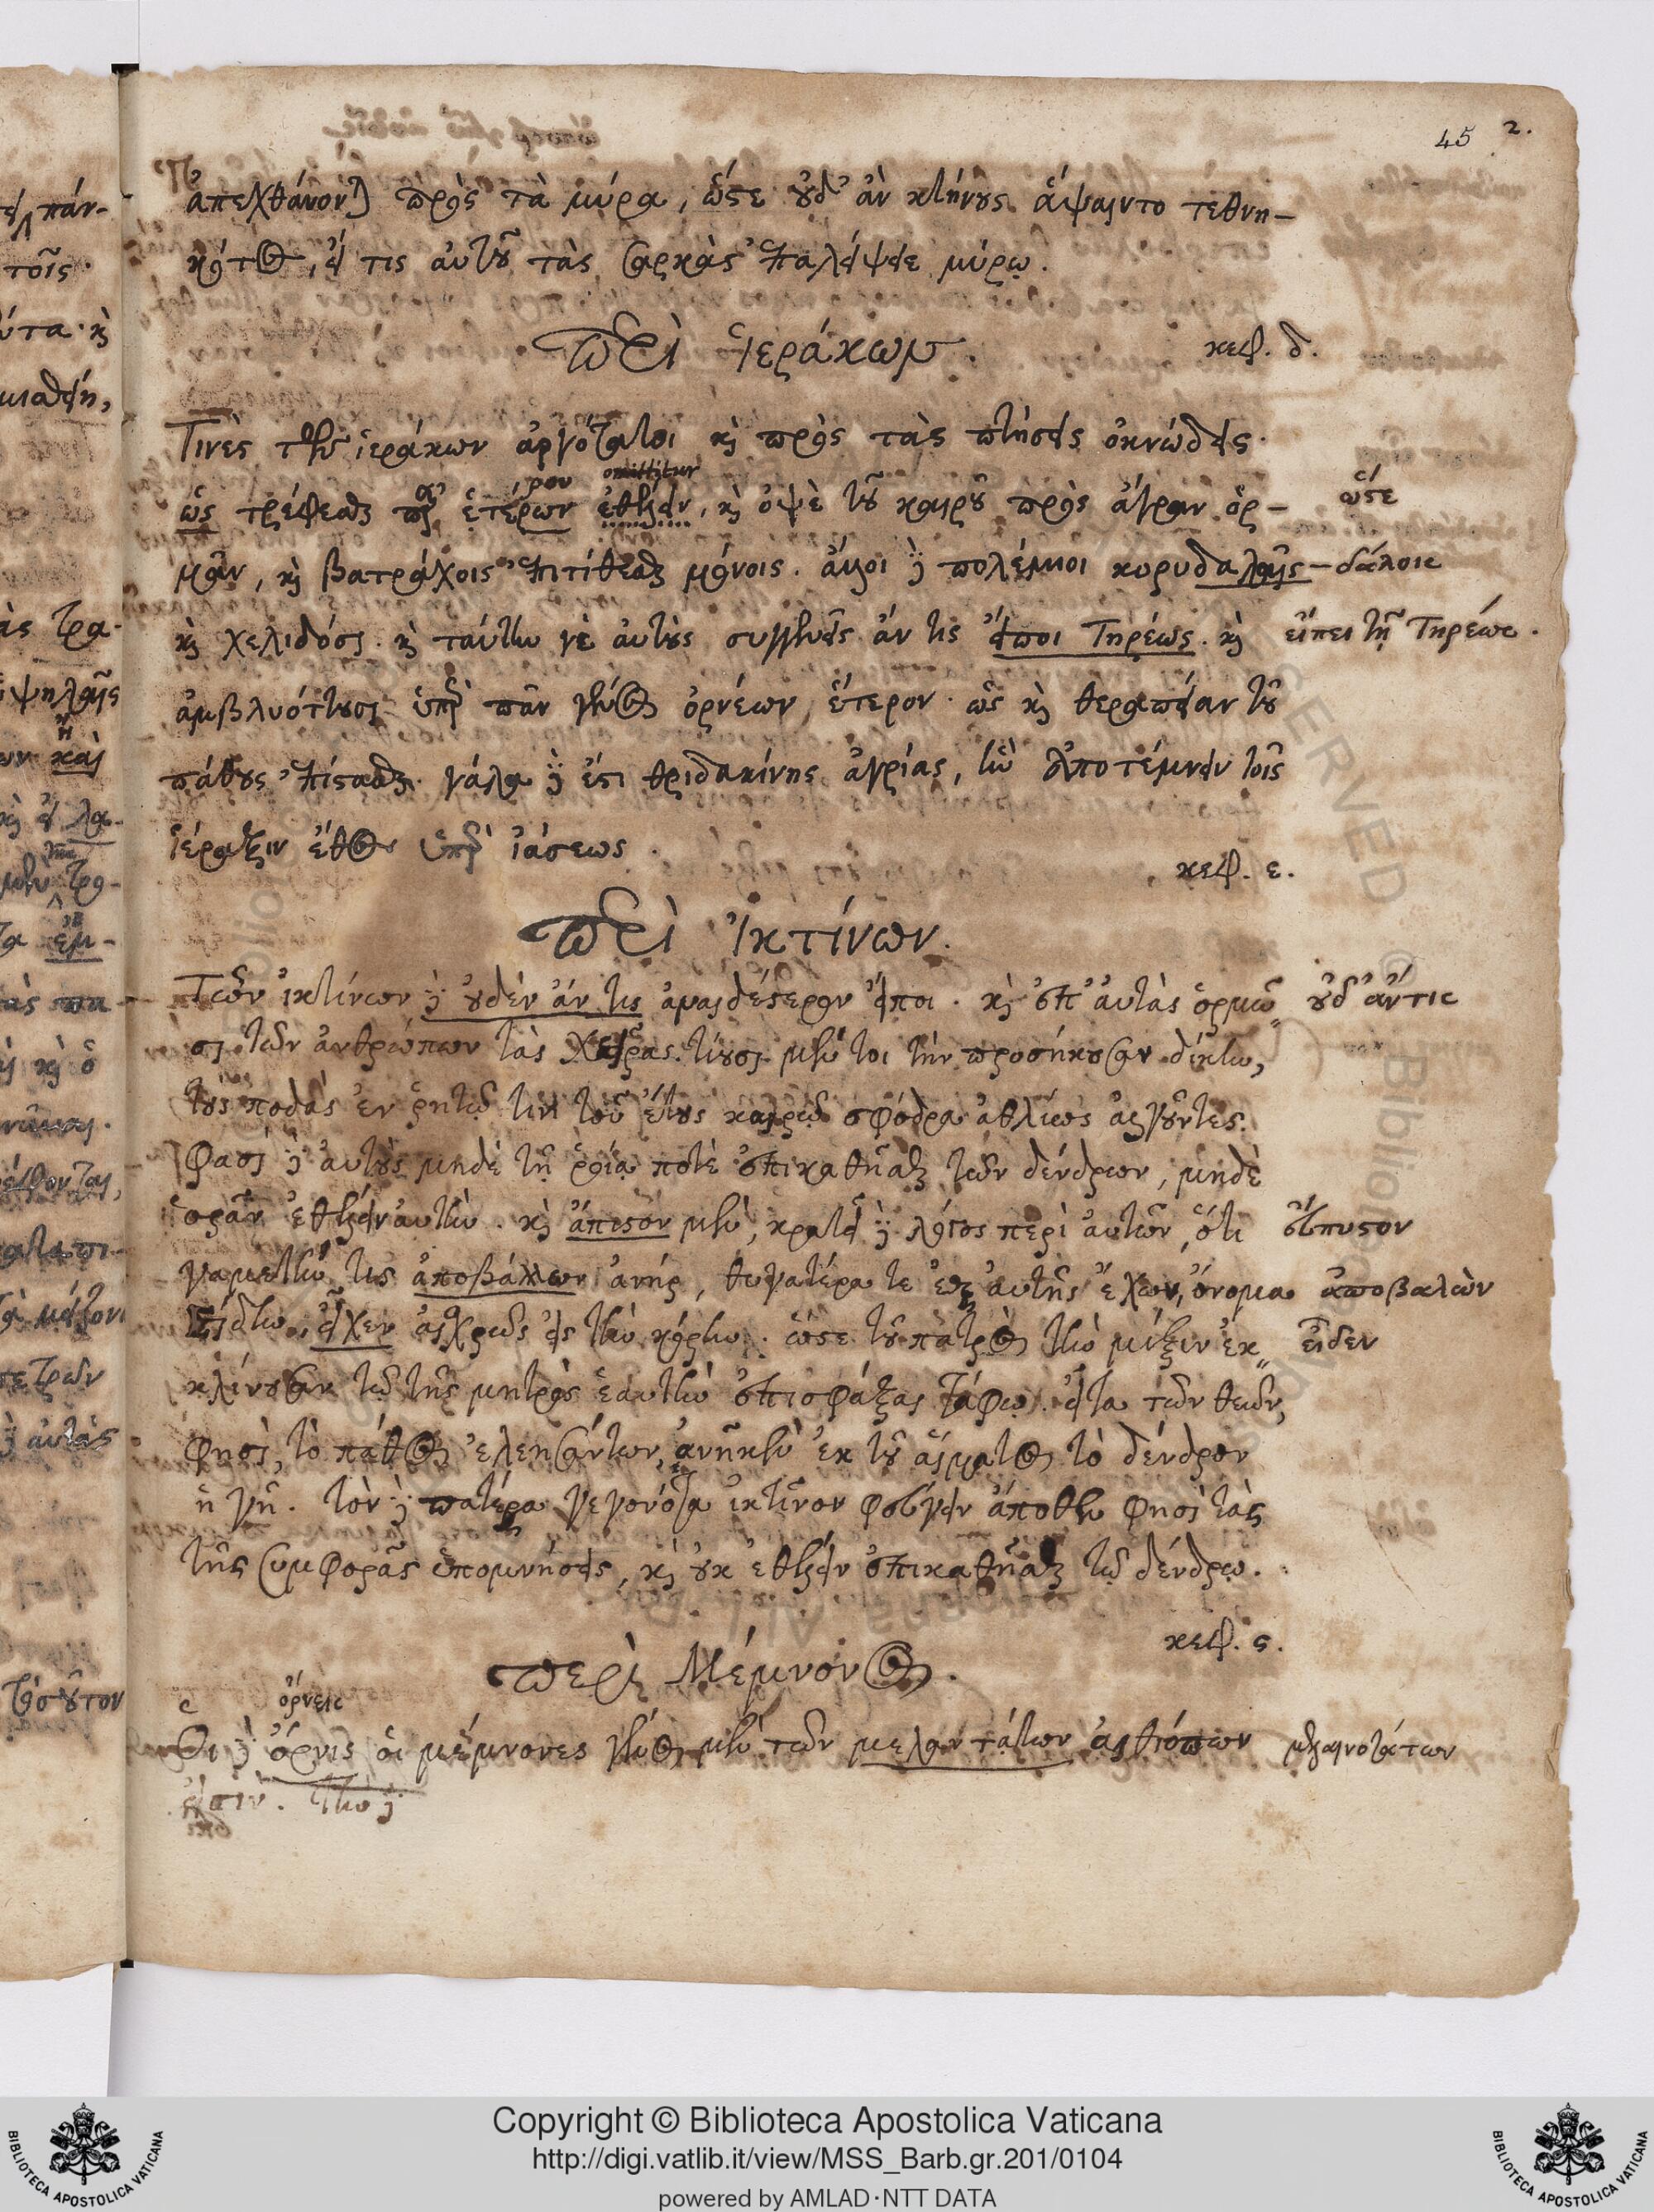 45 2.
ἀπεχθάνονται πρὸς τὰ μύρα, ὥστε οὐδ' ἂν κτήνους ἅψαιντο τεθνη-
κότος, εἴ τις αὐτοῦ τὰς σαρκὰς ἐπαλείψειε μύρῳ.
Περὶ ἱεράκων.
κεφ. δ.
Τινὲς τῶν ἱεράκων ἀργότατοι καὶ πρὸς τὰς πτήσεις ὀκνώδεις.
ρου omittitur
ὡς τρέφεσθαι παρ' ἑτέρων ἐθέλειν, καὶ ὀψὲ τοῦ καιροῦ πρὸς ἄγραν ὁρ-
ὥστε
μᾶν, καὶ βατράχοις ἐπιτίθεσθαι μόνοις. ἄλλοι δὲ πολέμιοι κορυδαλαῖς
-δάλοις
καὶ χελιδόσι. καὶ ταύτην γε αὐτοὺς συγγενεῖς ἄν τις εἴποι Τηρέως. καὶ
εἴπει τῇ Τηρέως.
ἀμβλυόττουσι ὑπὲρ πᾶν γένος ὀρνέων ἕτερον. ὡς καὶ θεραπείαν τοῦ
πάθους ἐπίστασθαι. γάλα δέ ἐστι θριδακίνης ἀγρίας, ἣν ἀποτέμνειν τοῖς
ἱέραξιν ἔθος ὑπὲρ ἰάσεως.
κεφ. ε.
Περὶ Ἰκτίνων.
Τῶν ἰκτίνων δὲ οὐδὲν ἄν τις ἀναιδέστερον εἴποι. καὶ ἐπ' αὐτὰς ὁρμῶ
οὐδ' ἄντις
σι τῶν ἀνθρώπων τὰς χεῖρας. τίουσι μέν τοι τὴν προσήκουσαν δίκην,
τοὺς πόδας ἐν ῥητῷ τινι τοῦ ἔτους καιρῷ σφόδρα ἀθλίως ἀλγοῦντες.
Φασὶ δ' αὐτοὺς μηδὲ τῇ ῥοίᾳ ποτὲ ἐπικαθῆσθαι τῶν δένδρων, μηδὲ
ὁρᾶν ἐθέλειν αὐτήν. καὶ ἄπιστον μέν, κρατεῖ δὲ λόγος περὶ αὐτῶν, ὅτι
γαμετήν τις ἀποβάλλων ἀνήρ, θυγατέρα τε ἐξ αὐτῆς ἔχων, ὄνομα
ἀποβαλὼν
Σίδην, εἶχεν αἰσχρῶς εἰς τὴν κόρην. ὥστε τοῦ πατρὸς τὴν μίξιν ἐκ
εἶδεν
κλίνουσαν τῷ τῆς μητρὸς ἑαυτὴν ἐπισφάξας τάφῳ. εἶτα τῶν θεῶν,
φησὶ, τὸ πάθος ἐλεησάντων, ἀνῆκεν ἐκ τοῦ αἵματος τὸ δένδρον
ἡ γῆ. τὸν δὲ πατέρα γεγονότα ἰκτῖνον φεύγειν ἄποθεν φησὶ τὰς
τῆς συμφορᾶς ὑπομνήσεις, καὶ οὐκ ἐθέλειν ἐπικαθῆσθαι τῷ δένδρῳ.
κεφ. ς.
περὶ Μέμνονος.
ὄρνεις
Οἱ δὲ ὄρνις οἱ μέμνονες γένος μὲν τῶν μελαντάτων αἰθιόπων
μελαινοτάτων
εἰσίν. τὴν δὲ
Copyright © Biblioteca Apostolica Vaticana
http://digi.vatlib.it/view/MSS_Barb.gr.201/0104
powered by AMLAD·NTT DATA
BIBLIOTECA APOSTOLICA VATICANA
BIBLIOTECA APOSTOLICA VATICANA